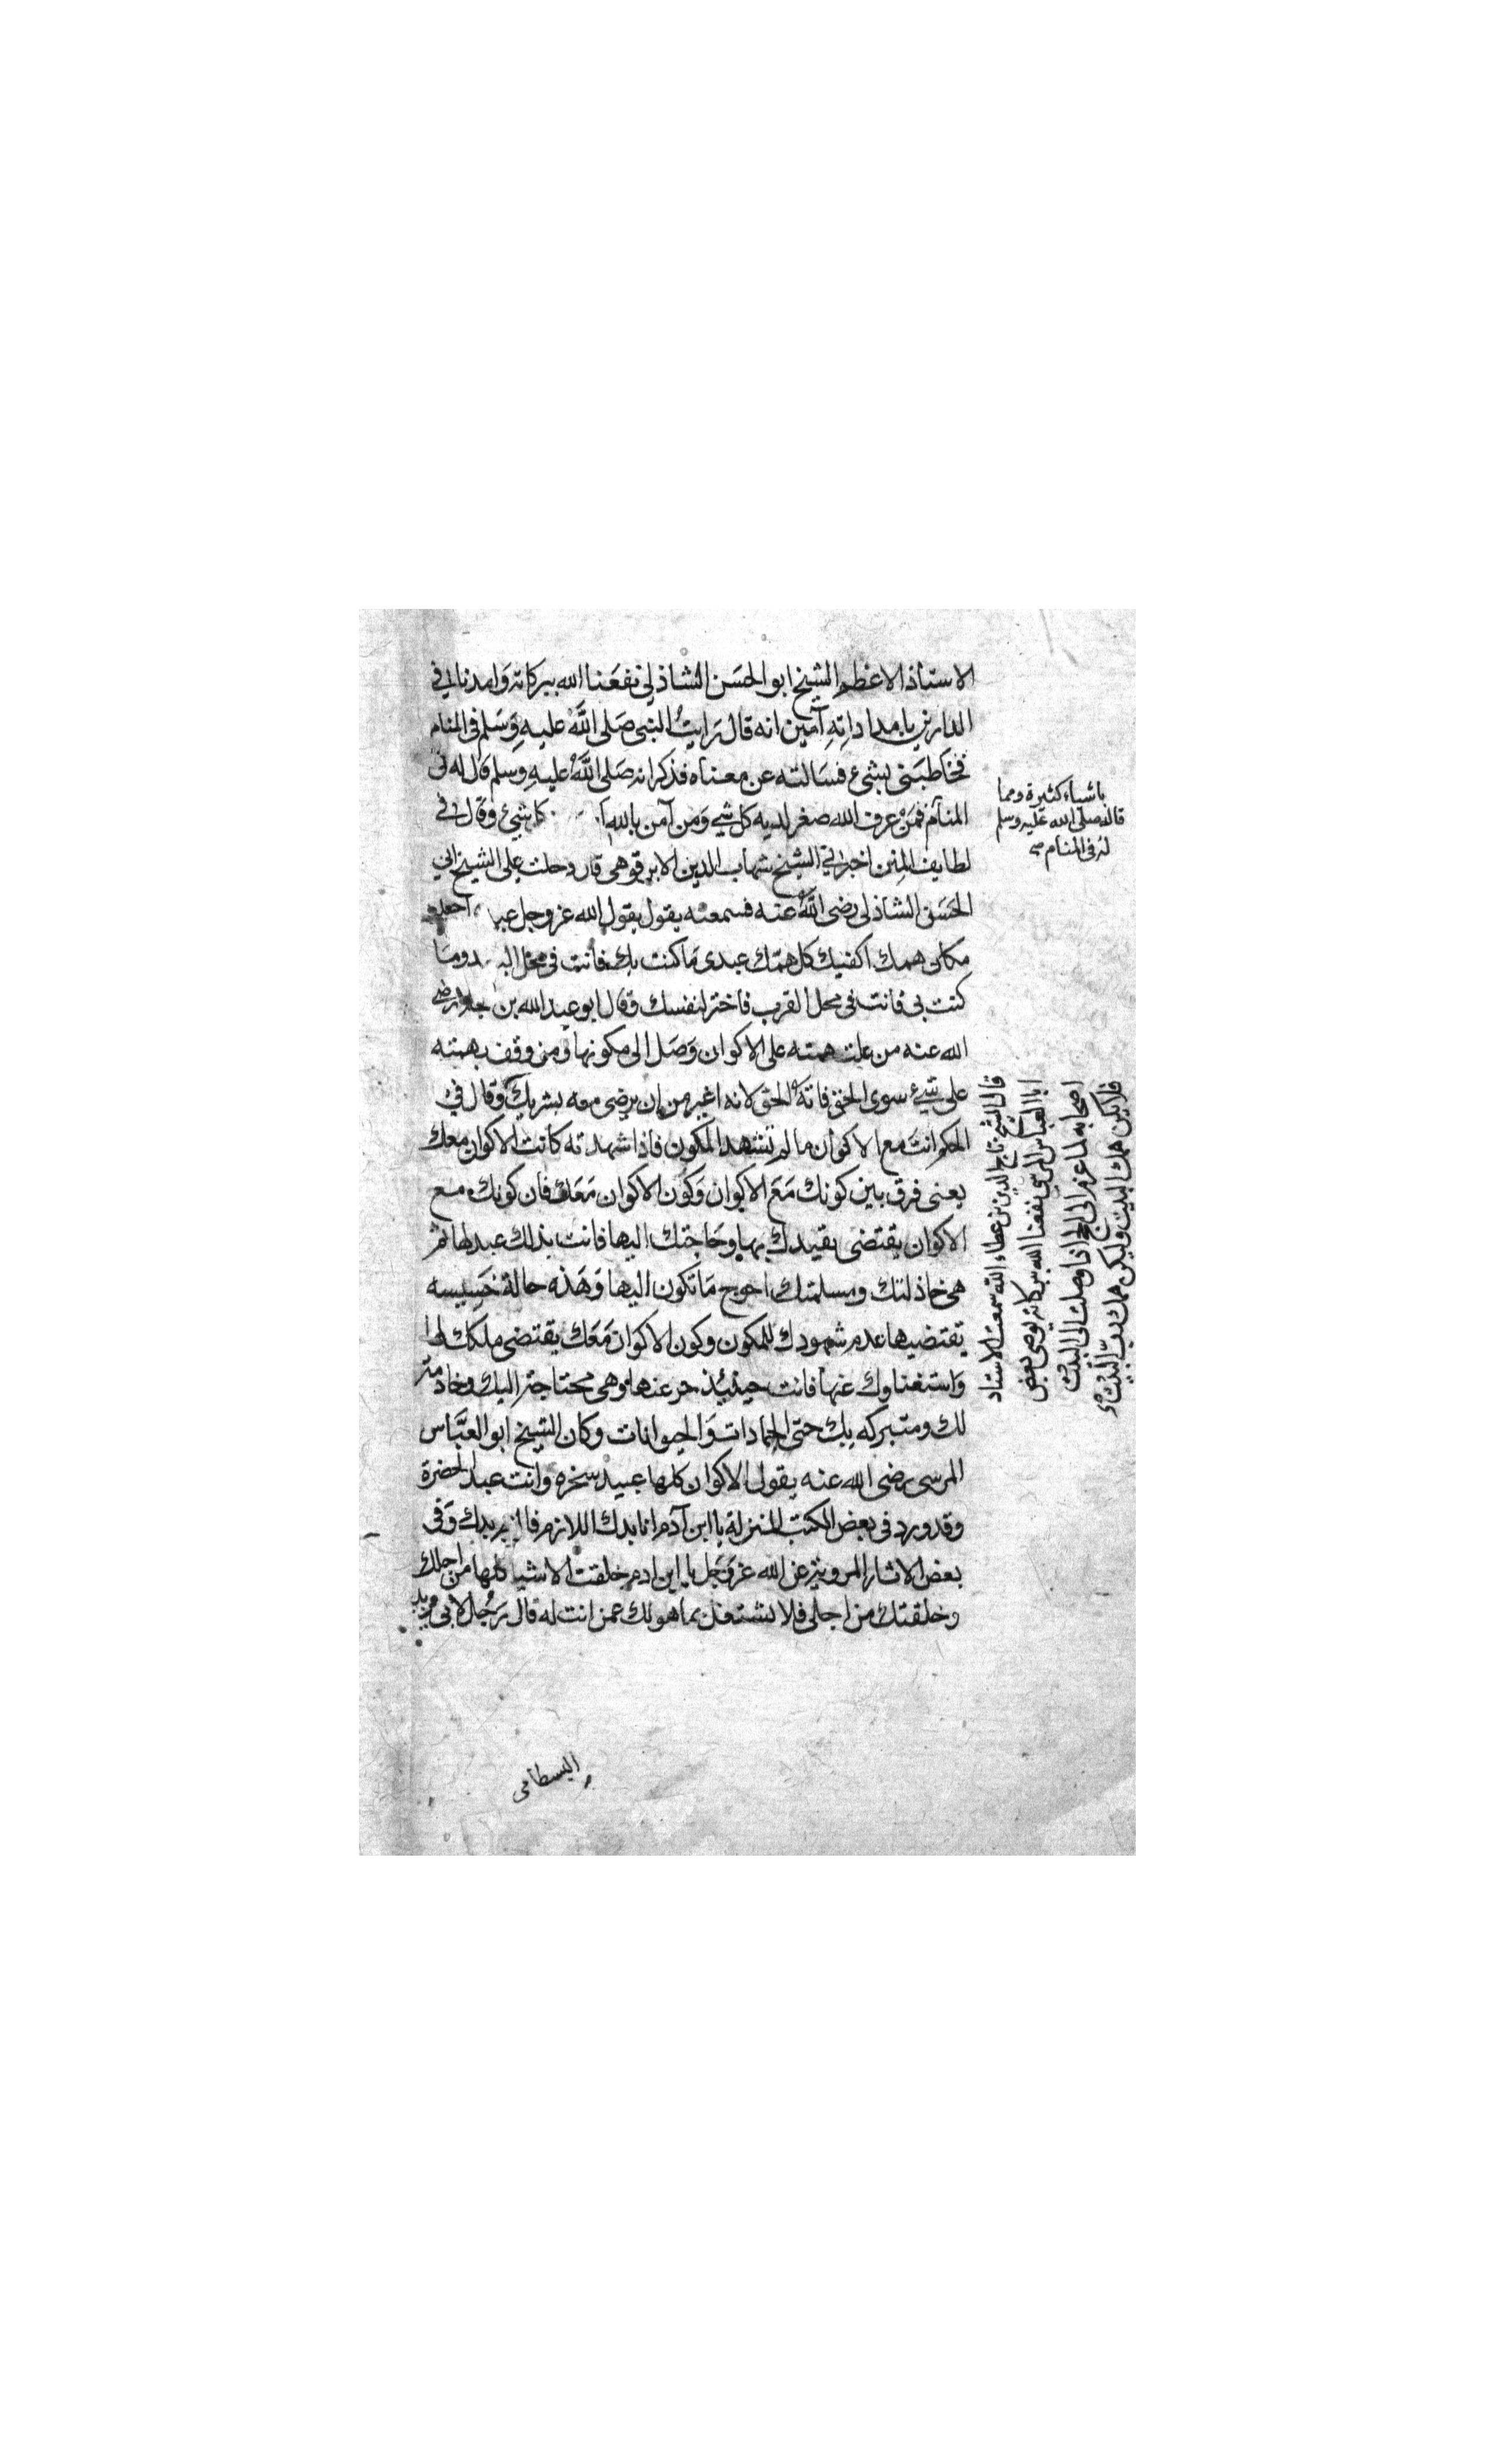 الاستاذ الاعظم الشيخ ابو الحسَن الشاذلي نفعَنا الله ببركاته وَامدنا في
الدارين بامداداتِهِ آمين انه قال رَايتُ النبى صَلى اللَّه عليهِ وَسَلم فى المنام
فخاطبَنى بشىء فسَالته عن معناه فذكر انه صَلى اللَّهُ عليهِ وسلم قال له فى
المنام فمَنْ عرف الله صغر لديه كل شي وَمن آمن بالله كل شيء وَقال في
لطايف المِنن اخبرني الشيخ شهاب الدين الابرقوهى قال دخلت على الشيخ ابي
الحَسَن الشاذلى رضى اللَّهُ عنه فسمعته يقول يقول الله عز وجل عبدي اجعلني
مكان همك اكفيك كل همّك عبدى مَا كنت بك فانت فى محل البعد ومَا
كنت بى فانت فى محل القرب فاختر لنفسك وَقال ابو عبد الله بن رضى
الله عنه من علت همته على الاكوان وَصَل الى مكونها وَمن وقف بهمته
على شيء سوى الحق فاتهُ الحق لانه اغير من ان يرضى معه بشريك وَقال في
الحكم انتَ مع الاكوان ما لم تشهد المكون فاذا شهدته كانت الاكوان معك
يعنى فرق بين كونك مَعَ الاكوان وَكون الاكوان مَعَك فان كونك مع
الاكوان يقتضى تقيدك بها وحَاجتك اليها فانت بذلك عبد لها ثم
هى خاذلتك ومسلمتك احوج مَا تكون اليها وَهَذه حالة خَسِيسه
يقتضيها عدم شهودك للمكون وكون الاكوان مَعَك يقتضى ملكك لها
وَاستغناوك عنها فانت حينئيذ حر عنها وهى محتاجة اليك وخادمة
لك ومتبركه بك حتى الجمادات وَالحيوانات وكان الشيخ ابو العبَّاس
المرسى رضى الله عنه يقول الاكوان كلها عبيد سخره وانت عبد الحضرة
وقد ورد فى بعض الكتب المنزلة يا ابن آدم انا بدك اللازم فالزم بدك وَفى
بعض الاثار المروية عن الله عز وَجَل يا ابن ادم خلقت الاشيا كلها من اجلك
وخلقتك من اجلى فلا تشتغل بما هو لك عمن انت له قال رَجُل لابى يزيد
البسطامى
باشياء كثيرة ومما
قاله صلى الله عليه وسلم
له فى المنام صح
قال الشيخ تاج الدين بن عطاء الله سمعت الاستاد
ابا العباس المرسي نفعنا الله ببركاته يوصى بعض
اصحابه لما عزم الى الحج اذا وصلت الى البَيْت
فلا يكن همك البيت وليكن همك ربّ البَيْتْ